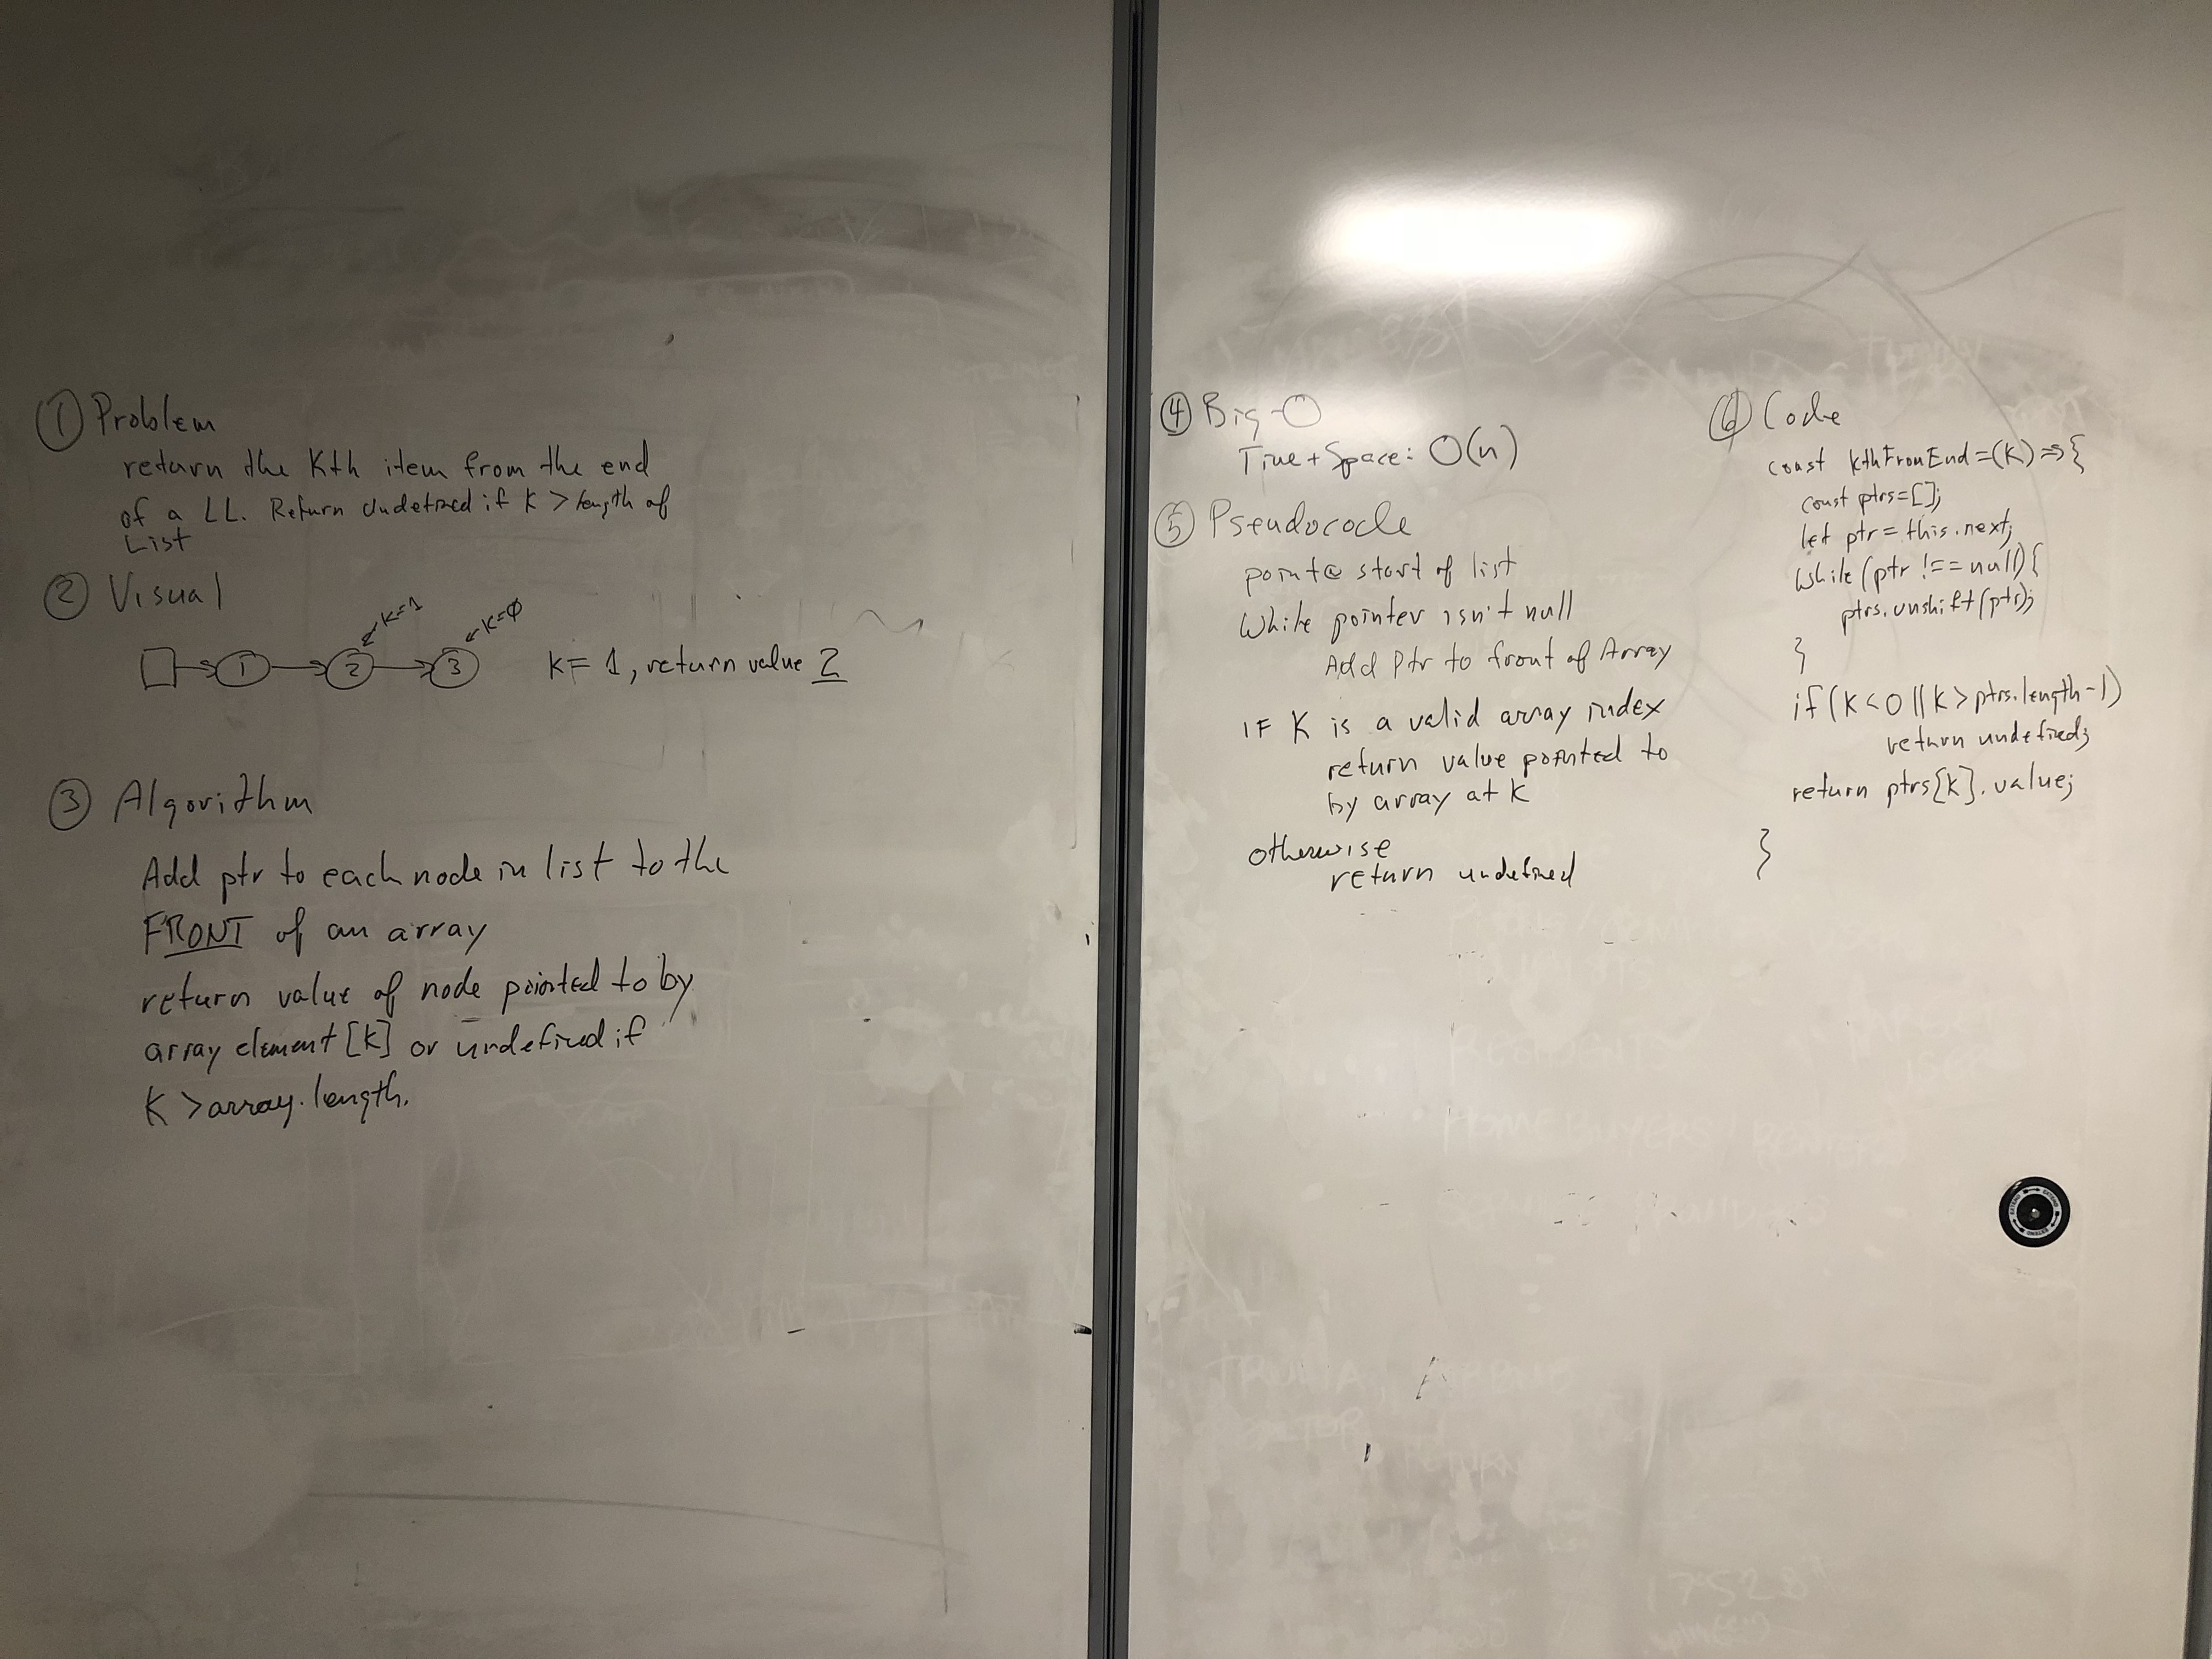 ① Problem
return the Kth item from the end
of a LL. Return undefined if K > length of
List
② Visual
K=1
K=0
1
2
3
K= 1, return value 2
③ Algorithm
Add ptr to each node in list to the
FRONT of an array
return value of node pointed to by
array element [K] or undefined if
K > array.length.
④ Big-O
Time + Space: O(n)
⑤ Pseudocode
point@ start of list
While pointer isn't null
Add Ptr to front of Array
IF K is a valid array index
return value pointed to
by array at K
otherwise
return undefined
⑥ Code
const kthFromEnd=(K)=>{
const ptrs=[];
let ptr=this.next;
while(ptr !== null){
ptrs.unshift(ptr);
}
if(K<0 || K > ptrs.length-1)
return undefined;
return ptrs[K].value;
}
HOME BUYERS
17528